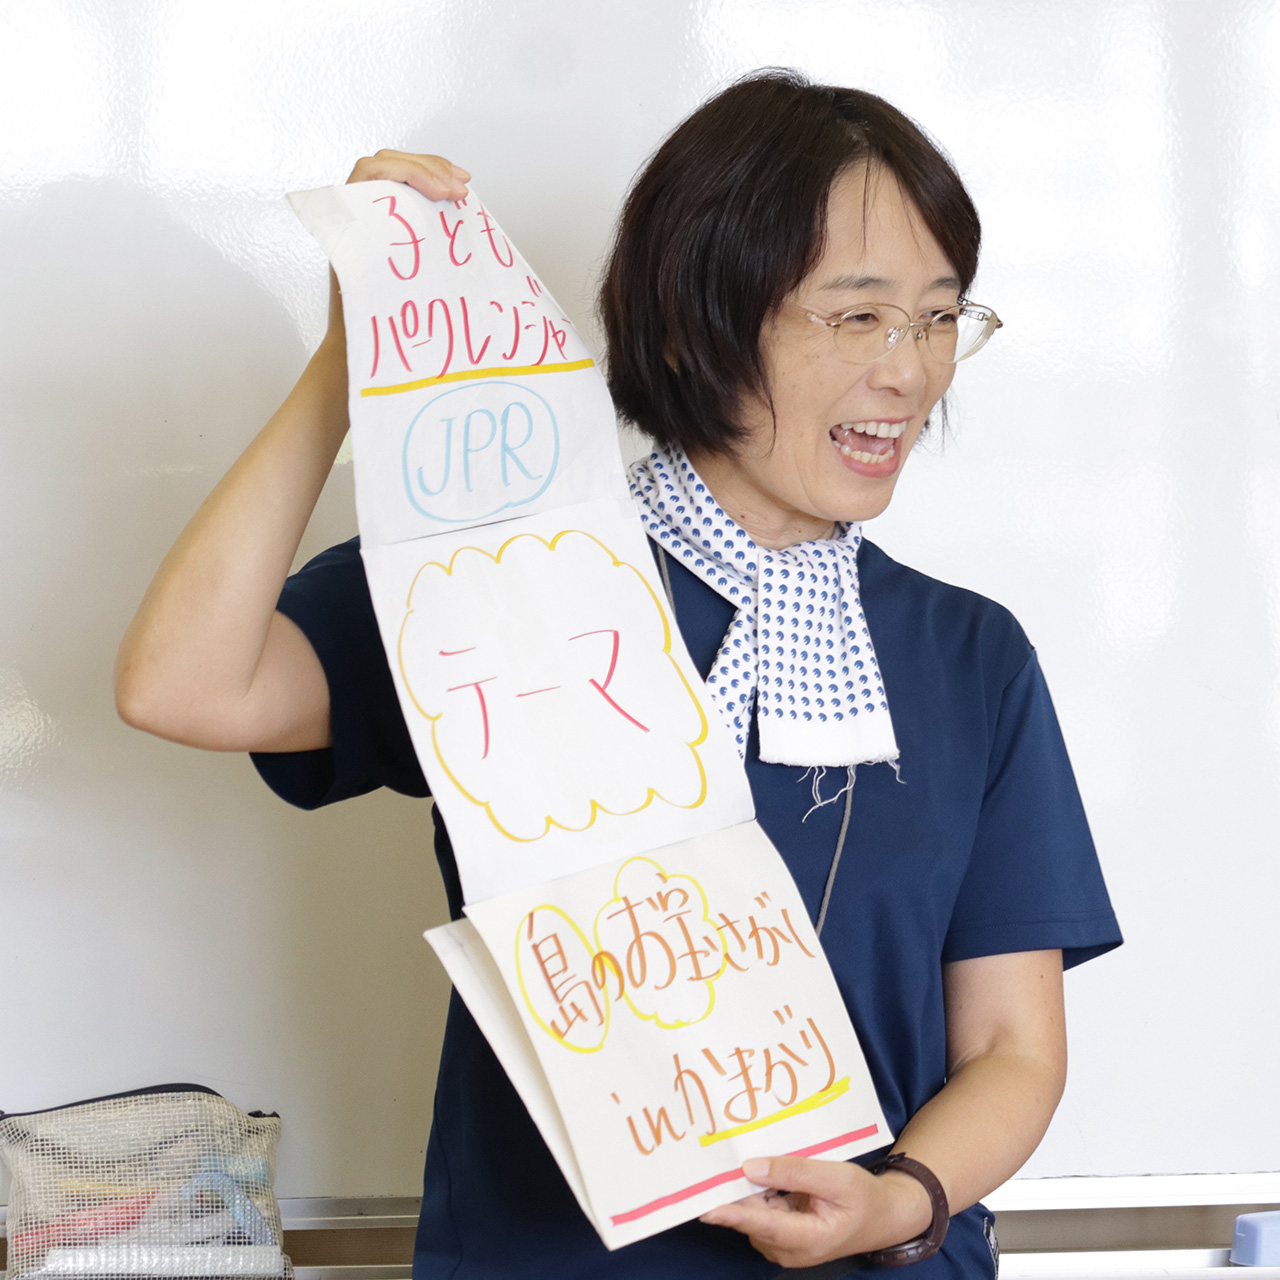 子ども
パークレンジャー
JPR
テーマ
島のお宝さがし
inかまがり